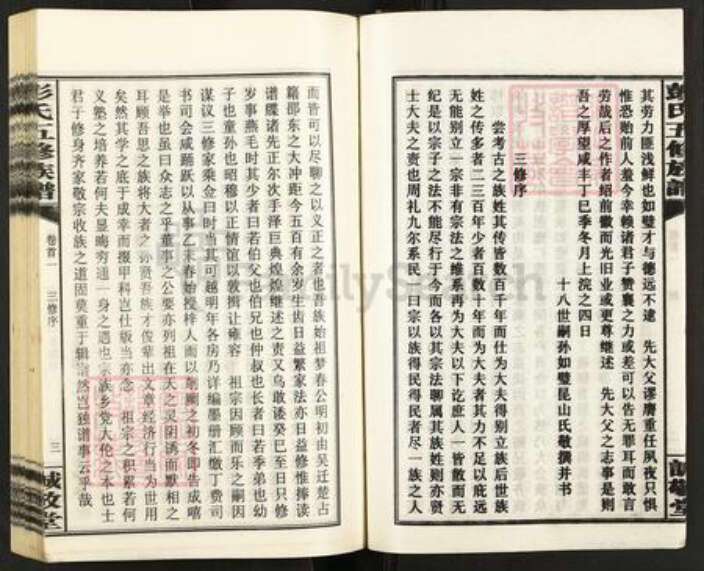 其劳力匪浅鲜也如璧才与德远不逮　先大父谬膺重任夙夜只惧
惟恐贻前人羞今幸赖诸君子赞襄之力或差可以告无罪耳而敢言
劳哉后之作者绍前徽而光旧业或更尊继述　先大父之志事是则
吾之厚望咸丰丁巳季冬月上浣之四日
十八世嗣孙如璧昆山氏敬撰并书
三修序
尝考古之族姓其传皆数百千年而仕为大夫得别立族后世族
姓之传多者二三百年少者百数十年而为大夫者其力不足以庇远
无能别立一宗非有宗法之维系再为大夫以下讫庶人一皆散而无
纪是以宗子之法不能尽行于今而各以其宗法聊属其族姓则亦贤
士大夫之责也周礼九尔系民一曰宗以族得民得民者尽一族之人
而皆可以尽聊之以义之者也吾族始祖梦春公明初由吴迁楚占
籍邵东之大冲距今五百有余岁生齿日益繁家法亦日益修惟捧读
谱牒诸先正尔次手泽巨典煌煌继述之责又乌敢诿癸巳至日只修
岁事燕毛时其少者曰若伯父也伯兄也仲叔也长者曰若季弟也幼
子也童孙也昭穆以正情谊以敦揖让雍容　祖宗因顾而乐之嗣因
谋议三修家乘佥曰时当其可越明年各房乃详编墨册汇缴丁费司
书司会咸踊跃以从事乙未春始授梓人雨以
是举也虽曰众志之乎董事之公要亦列祖在天之灵阴诱而默相之
耳顾吾思之族将大者之　孙贤吾族才俊辈出文章经济行当为世用
矣然其学之底于成幸而掇甲科岂仕版当亦念　祖宗之积累若何
义塾之培养若何夫显晦穷通一身之遇也宗族乡党人伦之本也士
君子修身齐家敬宗收族之道固莫重于辑　然岂独谱事云乎哉
彭氏五修族谱
卷首一
三修序
三
诚敬堂